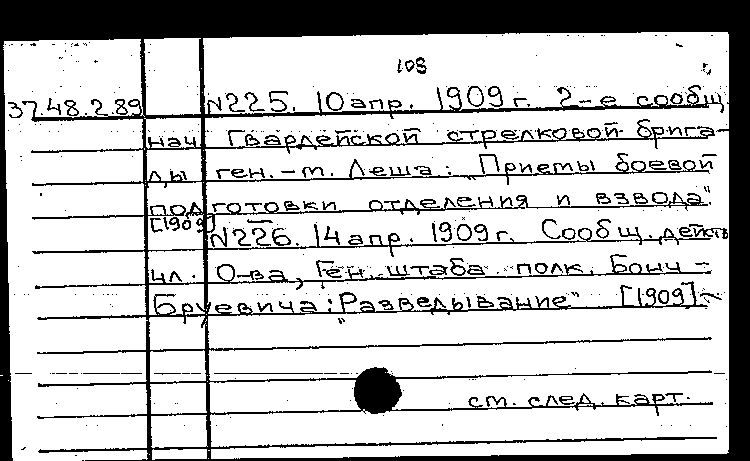 108
37.48.2.89 N225. 10 апр. 1909 г. 2-е сообщ.
нач. Гвардейской стрелковой брига-
ды ген.-м. Леша: "Приемы боевой
подготовки отделения и взвода".
[1909]
N226. 14 апр. 1909 г. Сообщ. действ.
чл. О-ва, Ген. штаба полк. Бонч-
Бруевича: "Разведывание" [1909]
ст. след. карт.